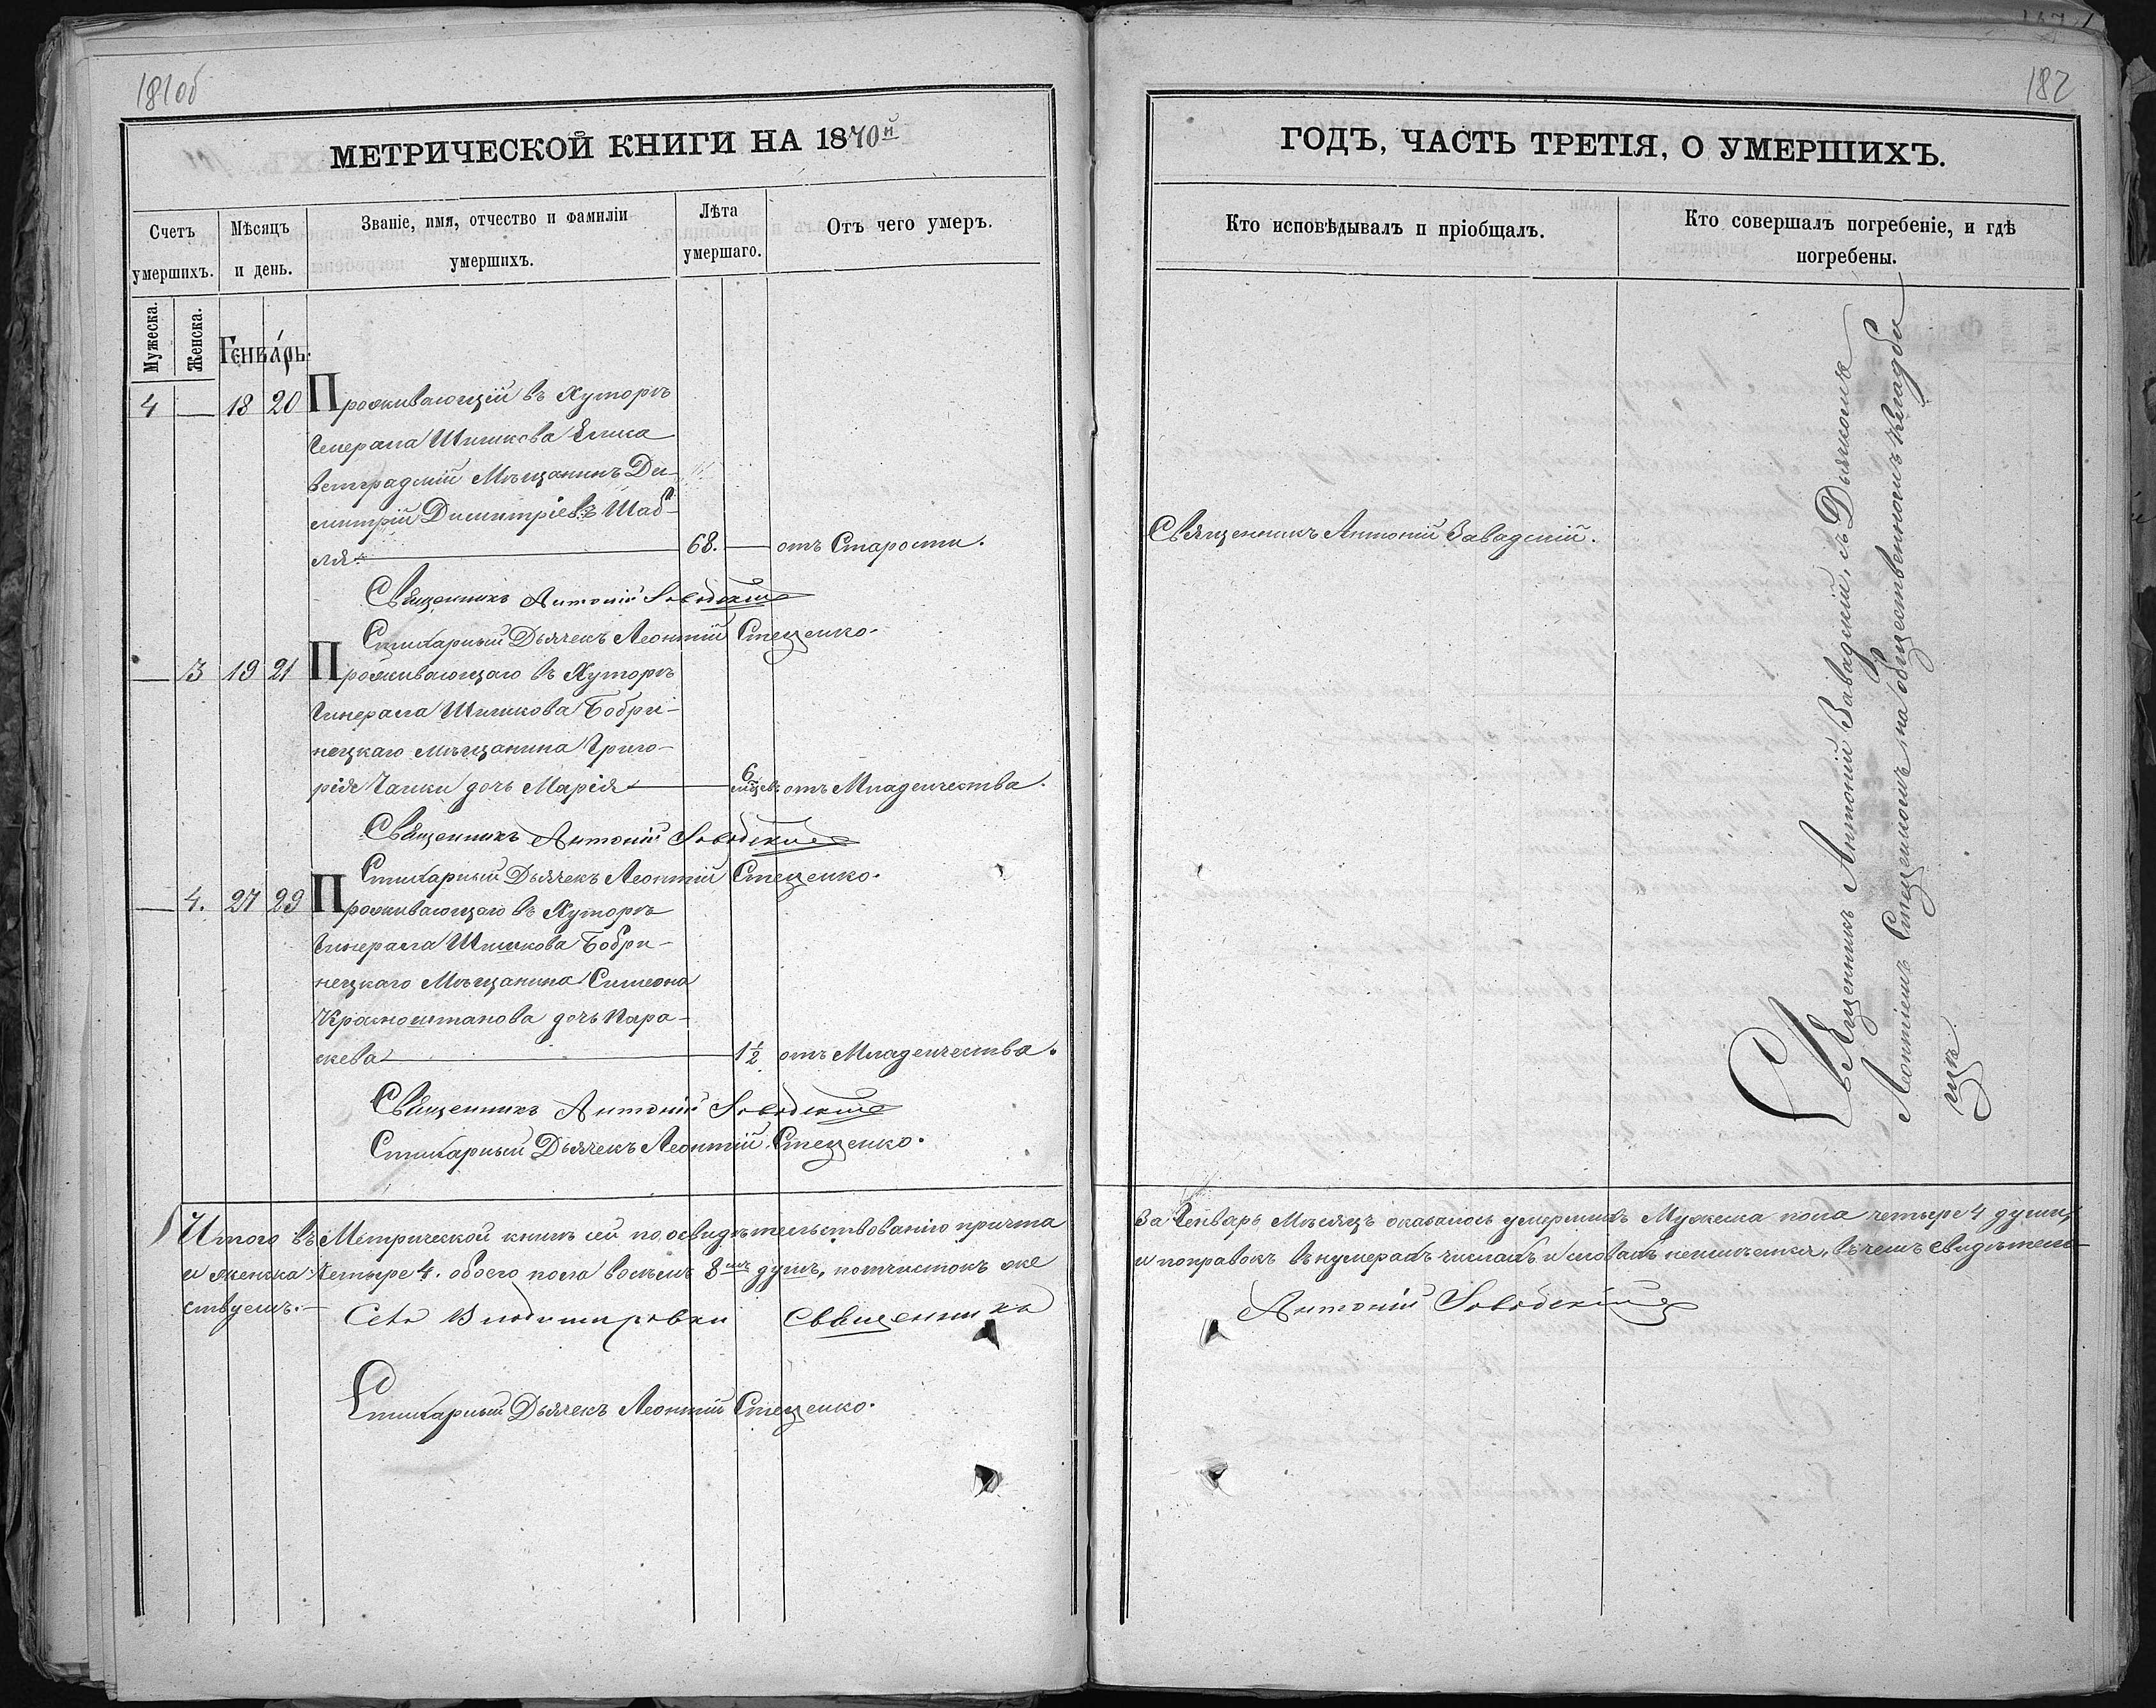 181об
МЕТРИЧЕСКОЙ КНИГИ НА 1870й
Счетъ умершихъ.
Мѣсяцъ и день.
Званіе, имя, отчество и фамиліи умершихъ.
Лѣта умершаго.
Отъ чего умеръ.
Мужеска.
Женска.
Генва́рь.
4 — 18 20 Проживающій въ Хуторѣ
Генерала Шишкова Елиса
ветградскій Мѣщанинъ Ди-
митрій Димитріевъ Шаб-
ля — 68. — отъ Старости.
Священникъ Антоній Заводскій
Стихарный Дьячекъ Леонтій Стеценко.
— 3 19 21 Проживающаго въ Хуторѣ
Генерала Шишкова Бобри-
нецкаго мѣщанина Григо-
рія Чайки дочь Марія — 6 мѣсцевъ отъ Младенчества.
Священникъ Антоній Заводскій
Стихарный Дьячекъ Леонтій Стеценко.
— 4. 27 29 Проживающаго въ Хуторѣ
Генерала Шишкова Бобри-
нецкаго Мѣщанина Симеона
Красноштанова дочь Пара-
скева — 1½ отъ Младенчества.
Священникъ Антоній Заводскій
Стихарный Дьячекъ Леонтій Стеценко.
Итого въ Метрической книгѣ сей по освидѣтельствованію причта
и женска четыре 4. обоего пола восемь 8мь душъ, почистокъ же
ствуемъ.—
Села Владимировки Священникъ
Стихарный Дьячекъ Леонтій Стеценко.
182
ГОДЪ, ЧАСТЬ ТРЕТІЯ, О УМЕРШИХЪ.
Кто исповѣдывалъ и пріобщалъ.
Кто совершалъ погребеніе, и гдѣ погребены.
Священникъ Антоній Завадскій.
Священникъ Антоній Завадскій, съ Дьячкомъ
Леонтіемъ Стеценкомъ, на общественномъ кладби
щѣ
За Генварь Мѣсяцъ оказалось умершихъ Мужеска пола четыре 4 души,
и поправокъ въ нумерахъ числахъ и словахъ неимѣется, въ чемъ свидѣтель-
Антоній Заводскій